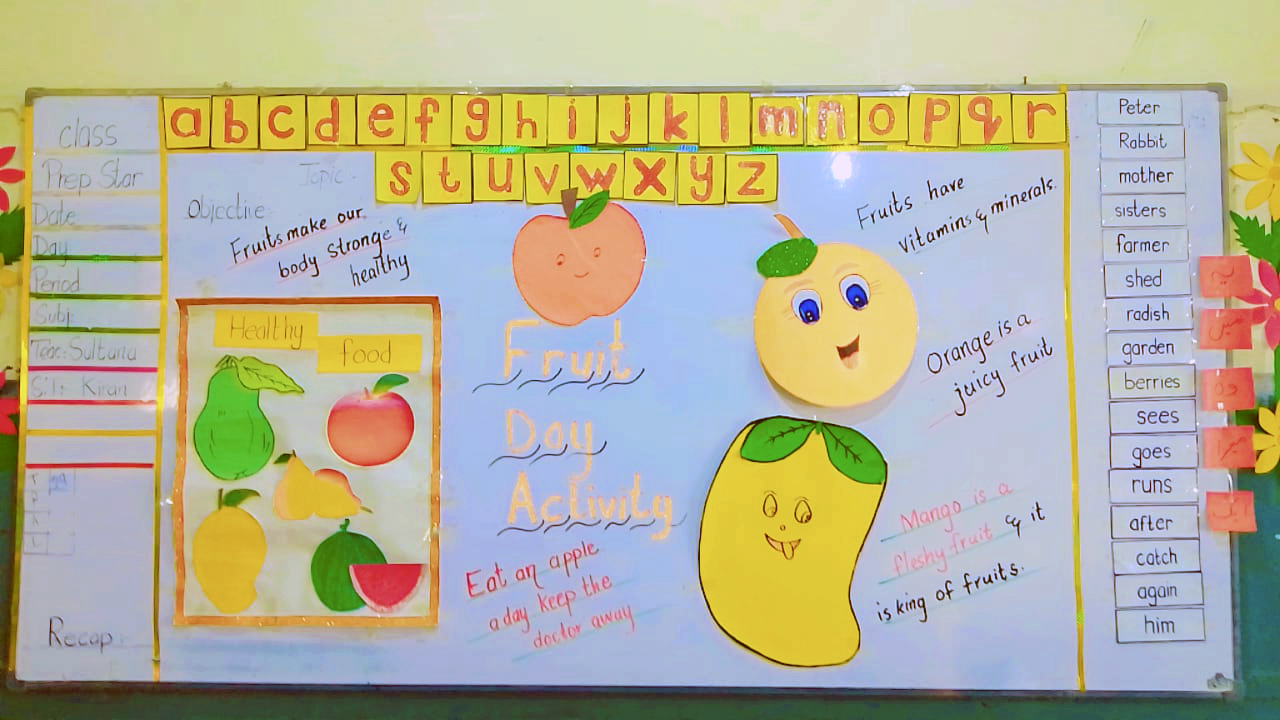 class
Prep Star
Date
Day
Period
Subj:
Teac: Sultana
S.I: Kiran
Recap
a b c d e f g h i j k l m n o p q r
s t u v w x y z
Topic-
Objective
Fruits make our
body stronge &
healthy
Healthy
food
Fruit
Day
Activity
Eat an apple
a day keep the
doctor away
Fruits have
vitamins & minerals.
Orange is a
juicy fruit
Mango is a
fleshy fruit & it
is king of fruits.
Peter
Rabbit
mother
sisters
farmer
shed
radish
garden
berries
sees
goes
runs
after
catch
again
him
میں
وہ